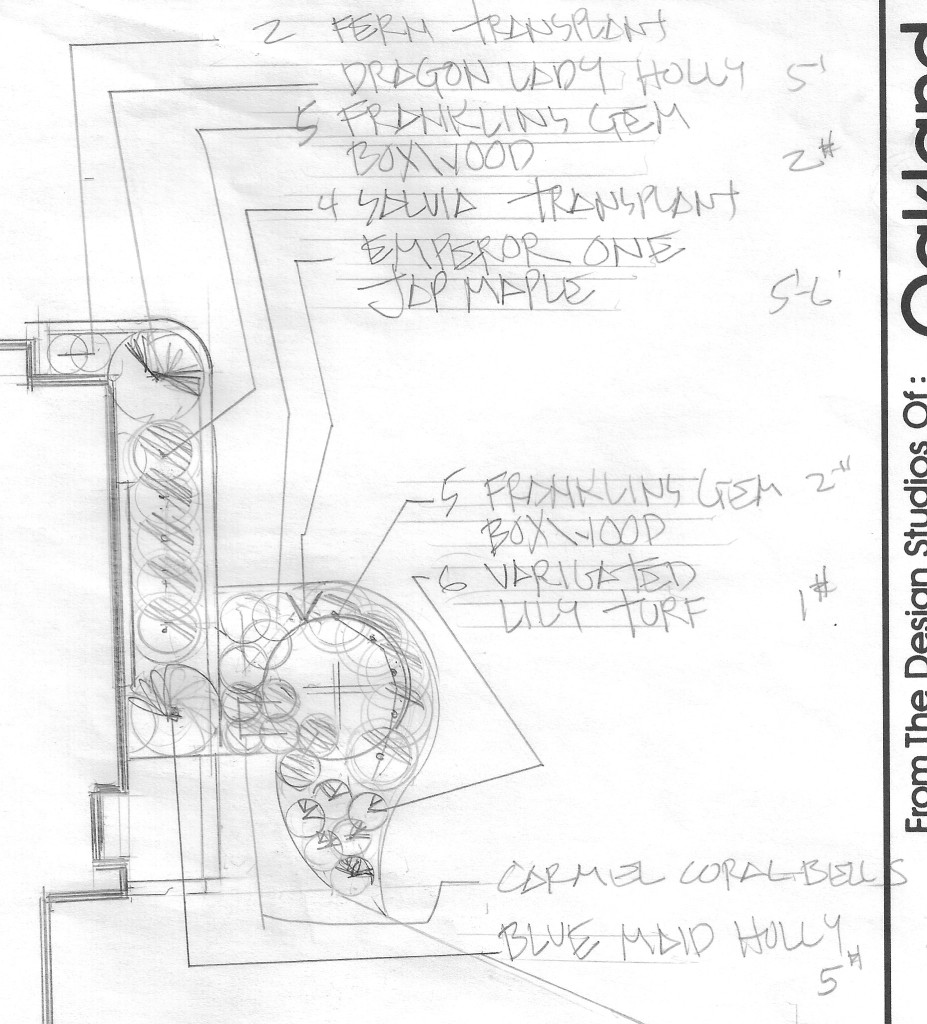 2 FERN TRANSPLANT
DRAGON LADY HOLLY 5'
5 FRANKLINS GEM
BOXWOOD 2#
4 SALVIA TRANSPLANT
EMPEROR ONE
JAP MAPLE 5-6'
5 FRANKLINS GEM 2"
BOXWOOD
6 VARIGATED
LILY TURF 1#
CARMEL CORAL BELLS
BLUE MAID HOLLY
5#
From The Design Studios Of: Oakland